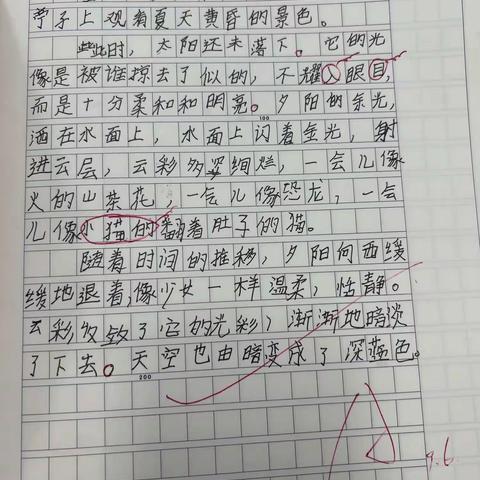 亭子上观看夏天黄昏的景色。
此时，太阳还未落下。它的光
像是被谁掠去了似的，不耀人眼目，
而是十分柔和和明亮。夕阳的余光，
100
洒在水面上，水面上闪着金光，射
进云层，云彩多姿绚烂，一会儿像
火的山茶花，一会儿像恐龙，一会
儿像小猫的翻着肚子的猫。
随着时间的推移，夕阳向西缓
缓地退着，像少女一样温柔，恬静。
云彩收敛了它的光彩，渐渐地暗淡
了下去。天空也由暗变成了深蓝色。
200
9.6